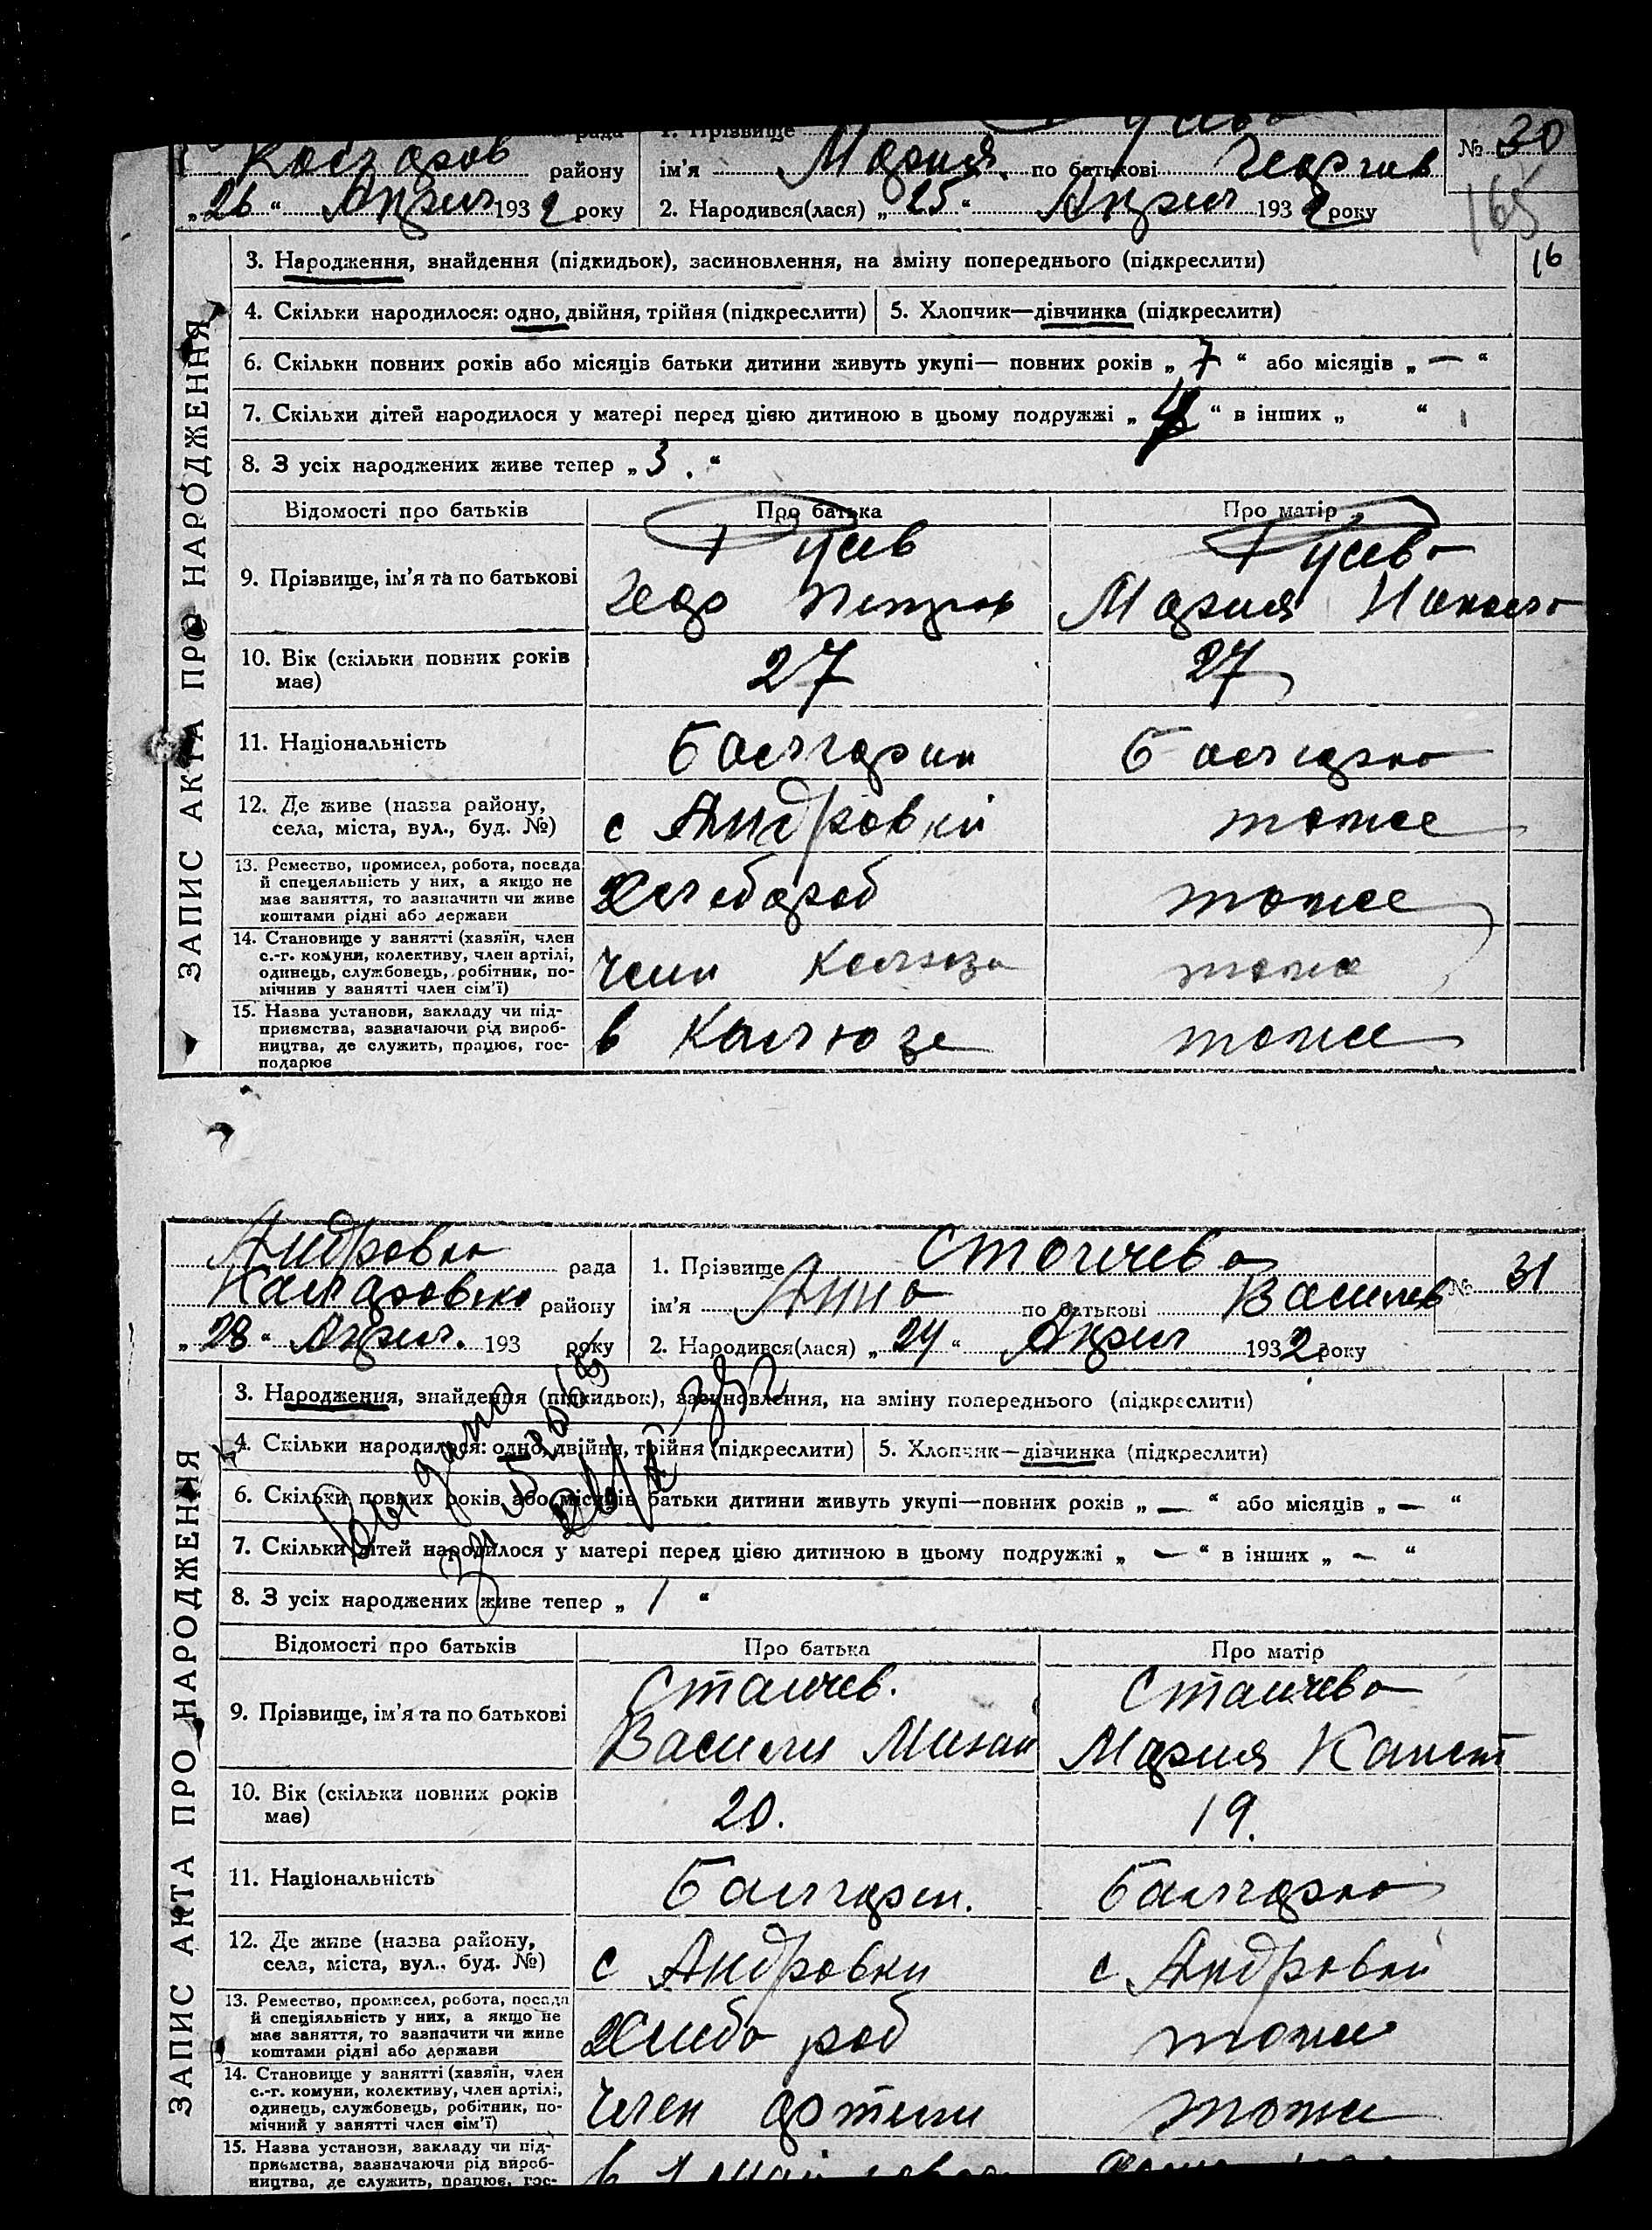 рада 1. Прізвище
району ім'я Мария по батькові Георгив № 30
„26“ Април 1932 року 2. Народився(лася) „25“ Април 1932 року 165
3. Народження, знайдення (підкидьок), засиновлення, на зміну попереднього (підкреслити) 16
4. Скільки народилося: одно, двійня, трійня (підкреслити) 5. Хлопчик—дівчинка (підкреслити)
6. Скільки повних років або місяців батьки дитини живуть укупі— повних років „ 7 “ або місяців „ — “
7. Скільки дітей народилося у матері перед цією дитиною в цьому подружжі „ 4 “ в інших „ “
8. З усіх народжених живе тепер „ 3. “
ЗАПИС АКТА ПРО НАРОДЖЕННЯ
Відомості про батьків Про батька Про матір
9. Прізвище, ім'я та по батькові Гусев Гусева
Мария
10. Вік (скільки повних років має) 27 27
11. Національність Болгарин Болгарка
12. Де живе (назва району, села, міста, вул., буд. №) с Андровки тоже
13. Ремество, промисел, робота, посада
й спецеяльність у них, а якщо не
має заняття, то зазначити чи живе
коштами рідні або держави Хлебороб тоже
14. Становище у занятті (хазяїн, член
с.-г. комуни, колективу, член артілі,
одинець, службовець, робітник, по-
мічнив у занятті член сім'ї) член Колхоза тоже
15. Назва установи, закладу чи під-
приємства, зазначаючи рід вироб-
ництва, де служить, працює, гос-
подарює в Колхозе тоже
Андровка рада 1. Прізвище Стойчева № 31
району ім'я Анна по батькові Василев
„28“ Април. 193 року 2. Народився(лася) „24“ Април 1932 року
3. Народження, знайдення (підкидьок), засиновлення, на зміну попереднього (підкреслити)
4. Скільки народилося: одно, двійня, трійня (підкреслити) 5. Хлопчик—дівчинка (підкреслити)
6. Скільки повних років або місяців батьки дитини живуть укупі—повних років „ — “ або місяців „ — “
7. Скільки дітей народилося у матері перед цією дитиною в цьому подружжі „ — “ в інших „ — “
8. З усіх народжених живе тепер „ 1 “
Выдано
ЗАПИС АКТА ПРО НАРОДЖЕННЯ
Відомості про батьків Про батька Про матір
9. Прізвище, ім'я та по батькові Стойчев. Стойчева
Василий Михай Мария Конст
10. Вік (скільки повних років має) 20. 19.
11. Національність Болгарин. Болгарка
12. Де живе (назва району, села, міста, вул., буд. №) с Андровки с. Андровки
13. Ремество, промисел, робота, посада
й спеціяльність у них, а якщо не
має заняття, то зазначити чи живе
коштами рідні або держави Хлибороб тоже
14. Становище у занятті (хазяїн, член
с.-г. комуни, колективу, член артілі,
одинець, службовець, робітник, по-
мічний у занятті член сім'ї) член артели тоже
15. Назва установи, закладу чи під-
приємства, зазначаючи рід вироб-
ництва, де служить, працює, гос-